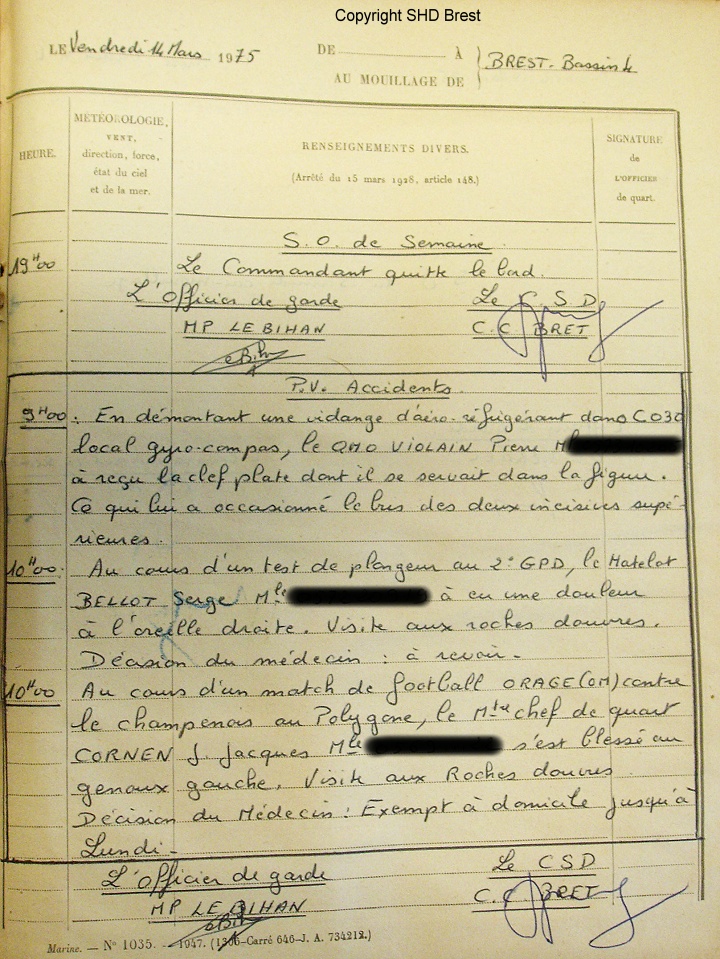 Copyright SHD Brest
LE Vendredi 14 Mars 1975 DE À BREST. Bassin 4
AU MOUILLAGE DE
HEURE.
MÉTÉOROLOGIE,
VENT,
direction, force,
état du ciel
et de la mer.
RENSEIGNEMENTS DIVERS.
(Arrêté du 15 mars 1928, article 148.)
SIGNATURE
de
L'OFFICIER
de quart.
S.O. de Semaine.
19H00 Le Commandant quitte le bord.
L'Officier de garde Le C S D
MP LE BIHAN C.C BRET
P.V. Accidents.
9H00: En démontant une vidange d'aéro-réfrigérant dans CO30
local gyro-compas, le QMO VIOLAIN Pierre Mle
à reçu la clef plate dont il se servait dans la figure.
Ce qui lui a occasionné le bris des deux incisives supé-
rieures.
10H00. Au cours d'un test de plongeur au 2° GPD, le Matelot
BELLOT Serge Mle à eu une douleur
à l'oreille droite. Visite aux roches douvres.
Décision du médecin : à revoir.-
10H00 Au cours d'un match de football ORAGE(OM) contre
le champenois au Polygone, le Mtre chef de quart
CORNEN J. Jacques Mle s'est blessé au
genoux gauche. Visite aux Roches douvres.
Décision du Médecin : Exempt à domicile jusqu'à
Lundi.-
L'Officier de garde Le CSD
MP LE BIHAN C.C BRET
Marine. — N° 1035. — 1947. (1306-Carré 646-J. A. 734212.)